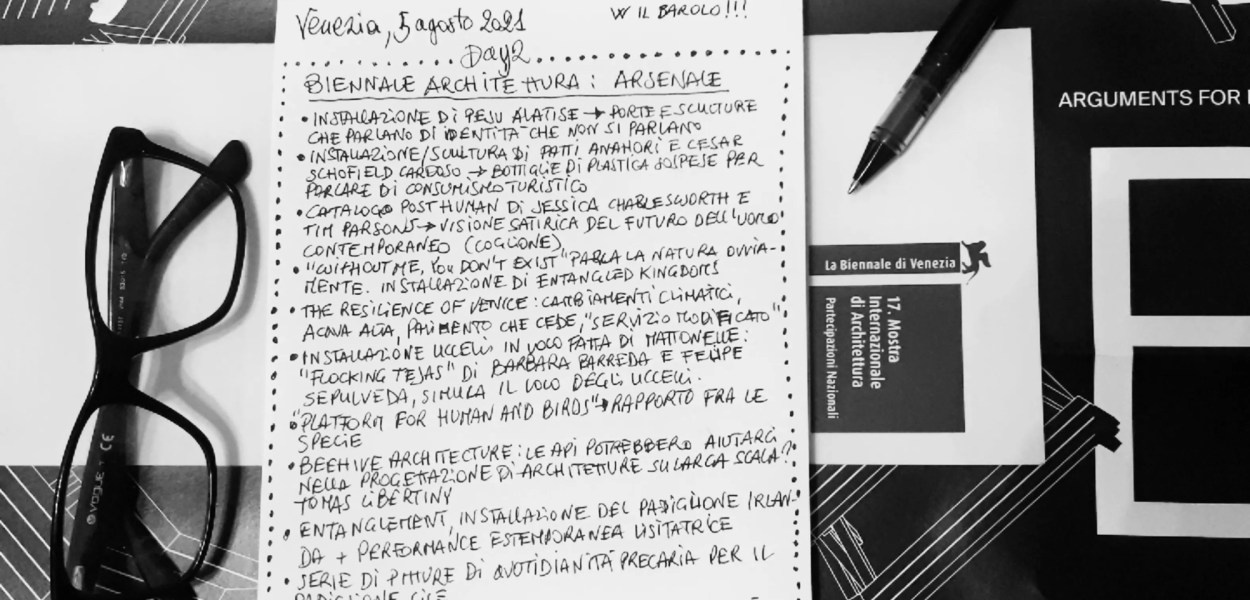 Venezia, 5 agosto 2021
W IL BAROLO!!!
Day 2
BIENNALE ARCHITETTURA: ARSENALE
• INSTALLAZIONE DI PESU ALATISE → PORTE E SCULTURE
CHE PARLANO DI IDENTITÀ CHE NON SI PARLANO
• INSTALLAZIONE/SCULTURA DI PATTI ANAHORI E CESAR
SCHOFIELD CARDOSO → BOTTIGLIE DI PLASTICA SOSPESE PER
PARLARE DI CONSUMISMO TURISTICO
• CATALOGO POST HUMAN DI JESSICA CHARLESWORTH E
TIM PARSONS → VISIONE SATIRICA DEL FUTURO DELL'UOMO
CONTEMPORANEO (COGLIONE)
• "WITHOUT ME, YOU DON'T EXIST" PARLA LA NATURA OVVIA-
MENTE. INSTALLAZIONE DI ENTANGLED KINGDOMS
• THE RESILIENCE OF VENICE: CAMBIAMENTI CLIMATICI,
ACQUA ALTA, PAVIMENTO CHE CEDE, "SERVIZIO MODIFICATO"
• INSTALLAZIONE UCCELLI IN VOLO FATTA DI MATTONELLE:
"FLOCKING TEJAS" DI BARBARA BARREDA E FELIPE
SEPULVEDA, SIMULA IL VOLO DEGLI UCCELLI.
• "PLATFORM FOR HUMAN AND BIRDS" → RAPPORTO FRA LE
SPECIE
• BEEHIVE ARCHITECTURE: LE API POTREBBERO AIUTARCI
NELLA PROGETTAZIONE DI ARCHITETTURE SU LARGA SCALA?
TOMAS LIBERTINY
• ENTANGLEMENT, INSTALLAZIONE DEL PADIGLIONE IRLAN-
DA + PERFORMANCE ESTEMPORANEA VISITATRICE
• SERIE DI PITTURE DI QUOTIDIANITÀ PRECARIA PER IL
PADIGLIONE CILE
vogue
CE
La Biennale di Venezia
17. Mostra
Internazionale
di Architettura
Partecipazioni Nazionali
ARGUMENTS FOR